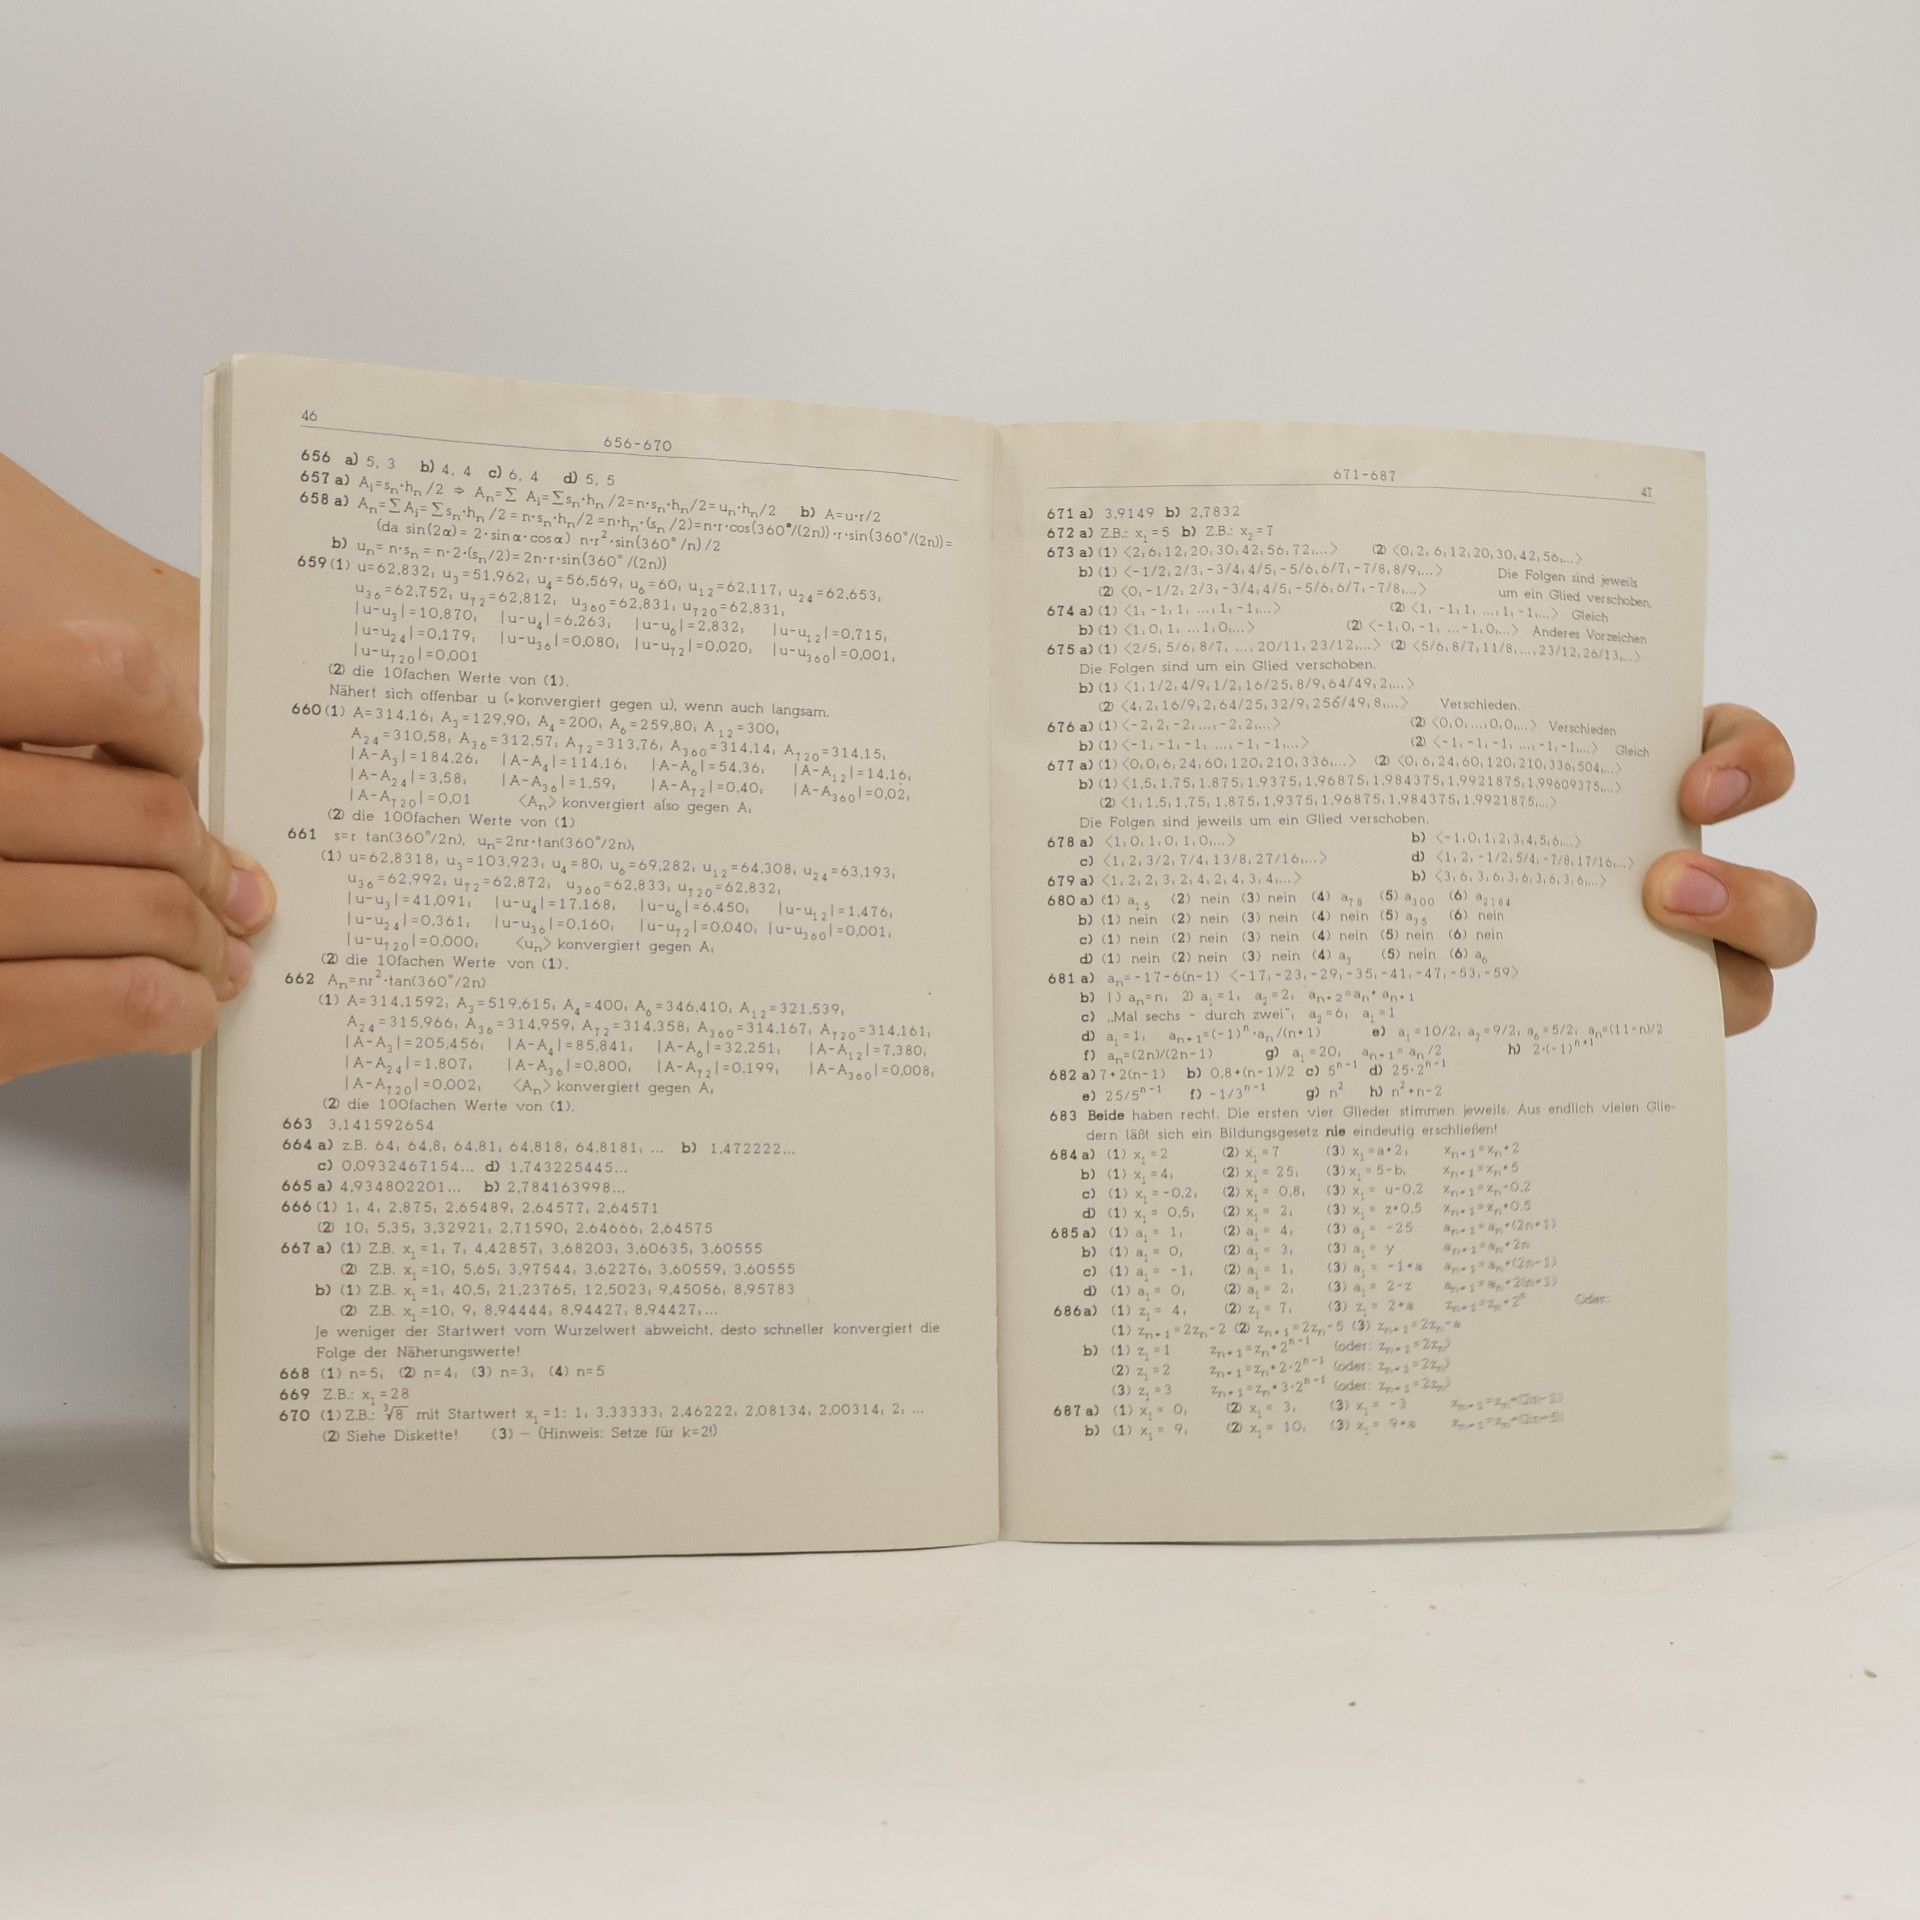 46
656-670
656 a) 5, 3 b) 4, 4 c) 6, 4 d) 5, 5
657 a) Aᵢ=sₙ·hₙ/2 ⇒ Aₙ=∑ Aᵢ=∑sₙ·hₙ/2=n·sₙ·hₙ/2=uₙ·hₙ/2 b) A=u·r/2
658 a) Aₙ=∑Aᵢ=∑sₙ·hₙ/2=n·sₙ·hₙ/2=n·hₙ·(sₙ/2)=n·r·cos(360°/(2n))·r·sin(360°/(2n))=
(da sin(2α)= 2·sinα·cosα) n·r²·sin(360°/n)/2
b) uₙ= n·sₙ = n·2·(sₙ/2)= 2n·r·sin(360°/(2n))
659 (1) u=62,832; u₃=51,962; u₄=56,569; u₆=60; u₁₂=62,117; u₂₄=62,653;
u₃₆=62,752; u₇₂=62,812; u₃₆₀=62,831; u₇₂₀=62,831;
|u-u₃|=10,870; |u-u₄|=6,263; |u-u₆|=2,832; |u-u₁₂|=0,715;
|u-u₂₄|=0,179; |u-u₃₆|=0,080; |u-u₇₂|=0,020; |u-u₃₆₀|=0,001;
|u-u₇₂₀|=0,001
(2) die 10fachen Werte von (1).
Nähert sich offenbar u (=konvergiert gegen u), wenn auch langsam.
660 (1) A=314,16; A₃=129,90; A₄=200; A₆=259,80; A₁₂=300;
A₂₄=310,58; A₃₆=312,57; A₇₂=313,76; A₃₆₀=314,14; A₇₂₀=314,15;
|A-A₃|=184,26; |A-A₄|=114,16; |A-A₆|=54,36; |A-A₁₂|=14,16;
|A-A₂₄|=3,58; |A-A₃₆|=1,59; |A-A₇₂|=0,40; |A-A₃₆₀|=0,02;
|A-A₇₂₀|=0,01 <Aₙ> konvergiert also gegen A;
(2) die 100fachen Werte von (1)
661 s=r tan(360°/2n), uₙ=2nr·tan(360°/2n);
(1) u=62,8318; u₃=103,923; u₄=80; u₆=69,282; u₁₂=64,308; u₂₄=63,193;
u₃₆=62,992; u₇₂=62,872; u₃₆₀=62,833; u₇₂₀=62,832;
|u-u₃|=41,091; |u-u₄|=17,168; |u-u₆|=6,450; |u-u₁₂|=1,476;
|u-u₂₄|=0,361; |u-u₃₆|=0,160; |u-u₇₂|=0,040; |u-u₃₆₀|=0,001;
|u-u₇₂₀|=0,000; <uₙ> konvergiert gegen A;
(2) die 10fachen Werte von (1).
662 Aₙ=nr²·tan(360°/2n)
(1) A=314,1592; A₃=519,615; A₄=400; A₆=346,410; A₁₂=321,539;
A₂₄=315,966; A₃₆=314,959; A₇₂=314,358; A₃₆₀=314,167; A₇₂₀=314,161;
|A-A₃|=205,456; |A-A₄|=85,841; |A-A₆|=32,251; |A-A₁₂|=7,380;
|A-A₂₄|=1,807; |A-A₃₆|=0,800; |A-A₇₂|=0,199; |A-A₃₆₀|=0,008;
|A-A₇₂₀|=0,002; <Aₙ> konvergiert gegen A;
(2) die 100fachen Werte von (1).
663 3,141592654
664 a) z.B. 64; 64,8; 64,81; 64,818; 64,8181; ... b) 1,472222...
c) 0,0932467154... d) 1,743225445...
665 a) 4,934802201... b) 2,784163998...
666 (1) 1; 4; 2,875; 2,65489; 2,64577; 2,64571
(2) 10; 5,35; 3,32921; 2,71590; 2,64666; 2,64575
667 a) (1) Z.B. x₁=1; 7; 4,42857; 3,68203; 3,60635; 3,60555
(2) Z.B. x₁=10; 5,65; 3,97544; 3,62276; 3,60559; 3,60555
b) (1) Z.B. x₁=1; 40,5; 21,23765; 12,5023; 9,45056; 8,95783
(2) Z.B. x₁=10; 9; 8,94444; 8,94427; 8,94427;...
Je weniger der Startwert vom Wurzelwert abweicht, desto schneller konvergiert die
Folge der Näherungswerte!
668 (1) n=5; (2) n=4; (3) n=3; (4) n=5
669 Z.B.: x₁=28
670 (1) Z.B.: ³√8 mit Startwert x₁=1: 1; 3,33333; 2,46222; 2,08134; 2,00314; 2; ...
(2) Siehe Diskette! (3) – (Hinweis: Setze für k=2!)
671-687
47
671 a) 3,9149 b) 2,7832
672 a) Z.B.: x₁=5 b) Z.B.: x₂=7
673 a) (1) <2; 6; 12; 20; 30; 42; 56; 72;...> (2) <0; 2; 6; 12; 20; 30; 42; 56;...>
b) (1) <-1/2; 2/3; -3/4; 4/5; -5/6; 6/7; -7/8; 8/9;...> Die Folgen sind jeweils
(2) <0; -1/2; 2/3; -3/4; 4/5; -5/6; 6/7; -7/8;...> um ein Glied verschoben.
674 a) (1) <1; -1; 1; ...; 1; -1;...> (2) <1; -1; 1; ...; 1; -1;...> Gleich
b) (1) <1; 0; 1; ...1; 0;...> (2) <-1; 0; -1; ...-1; 0;...> Anderes Vorzeichen
675 a) (1) <2/5; 5/6; 8/7; ...; 20/11; 23/12;...> (2) <5/6; 8/7; 11/8;...; 23/12; 26/13;...>
Die Folgen sind um ein Glied verschoben.
b) (1) <1; 1/2; 4/9; 1/2; 16/25; 8/9; 64/49; 2;...>
(2) <4; 2; 16/9; 2; 64/25; 32/9; 256/49; 8;...> Verschieden.
676 a) (1) <-2; 2; -2; ...; -2; 2;...> (2) <0; 0; ...; 0; 0;...> Verschieden
b) (1) <-1; -1; -1; ...; -1; -1;...> (2) <-1; -1; -1; ...; -1; -1;...> Gleich
677 a) (1) <0; 0; 6; 24; 60; 120; 210; 336;...> (2) <0; 6; 24; 60; 120; 210; 336; 504;...>
b) (1) <1,5; 1,75; 1,875; 1,9375; 1,96875; 1,984375; 1,9921875; 1,99609375;...>
(2) <1; 1,5; 1,75; 1,875; 1,9375; 1,96875; 1,984375; 1,9921875;...>
Die Folgen sind jeweils um ein Glied verschoben.
678 a) <1; 0; 1; 0; 1; 0;...> b) <-1; 0; 1; 2; 3; 4; 5; 6;...>
c) <1; 2; 3/2; 7/4; 13/8; 27/16;...> d) <1; 2; -1/2; 5/4; -7/8; 17/16;...>
679 a) <1; 2; 2; 3; 2; 4; 2; 4; 3; 4;...> b) <3; 6; 3; 6; 3; 6; 3; 6; 3; 6;...>
680 a) (1) a₁₅ (2) nein (3) nein (4) a₇₈ (5) a₃₀₀ (6) a₂₁₈₄
b) (1) nein (2) nein (3) nein (4) nein (5) a₃₅ (6) nein
c) (1) nein (2) nein (3) nein (4) nein (5) nein (6) nein
d) (1) nein (2) nein (3) nein (4) a₃ (5) nein (6) a₆
681 a) aₙ=-17-6(n-1) <-17; -23; -29; -35; -41; -47; -53; -59>
b) 1) aₙ=n; 2) a₁=1; a₂=2; aₙ₊₂=aₙ+aₙ₊₁
c) „Mal sechs - durch zwei“; a₂=6; a₁=1
d) a₁=1; aₙ₊₁=(-1)ⁿ·aₙ/(n+1) e) a₁=10/2; a₂=9/2; a₆=5/2; aₙ=(11-n)/2
f) aₙ=(2n)/(2n-1) g) a₁=20; aₙ₊₁=aₙ/2 h) 2·(-1)ⁿ⁺¹
682 a) 7+2(n-1) b) 0,8+(n-1)/2 c) 5ⁿ⁻¹ d) 25·2ⁿ⁻¹
e) 25/5ⁿ⁻¹ f) -1/3ⁿ⁻¹ g) n² h) n²+n-2
683 Beide haben recht. Die ersten vier Glieder stimmen jeweils. Aus endlich vielen Glie-
dern läßt sich ein Bildungsgesetz nie eindeutig erschließen!
684 a) (1) x₁=2 (2) x₁=7 (3) x₁=a+2; xₙ₊₁=xₙ+2
b) (1) x₁=4; (2) x₁= 25; (3) x₁= 5-b; xₙ₊₁=xₙ+5
c) (1) x₁=-0,2; (2) x₁= 0,8; (3) x₁= u-0,2 xₙ₊₁=xₙ-0,2
d) (1) x₁= 0,5; (2) x₁= 2; (3) x₁= z+0,5 xₙ₊₁=xₙ+0,5
685 a) (1) a₁= 1; (2) a₁= 4; (3) a₁= -25 aₙ₊₁=aₙ+(2n+1)
b) (1) a₁= 0; (2) a₁= 3; (3) a₁= y aₙ₊₁=aₙ+2n
c) (1) a₁= -1; (2) a₁= 1; (3) a₁= -1+a aₙ₊₁=aₙ+(2n-1)
d) (1) a₁= 0; (2) a₁= 2; (3) a₁= 2-z
686 a) (1) z₁= 4; (2) z₁= 7; (3) z₁= 2+a zₙ₊₁=zₙ+2ⁿ Oder:
(1) zₙ₊₁=2zₙ-2 (2) zₙ₊₁=2zₙ-5 (3) zₙ₊₁=2zₙ-a
b) (1) z₁=1 zₙ₊₁=zₙ+2ⁿ⁻¹ (oder: zₙ₊₁=2zₙ)
(2) z₁=2 zₙ₊₁=zₙ+2·2ⁿ⁻¹ (oder: zₙ₊₁=2zₙ)
(3) z₁=3 zₙ₊₁=zₙ+3·2ⁿ⁻¹ (oder: zₙ₊₁=2zₙ)
687 a) (1) x₁= 0; (2) x₁= 3; (3) x₁= -3
b) (1) x₁= 9; (2) x₁= 10; (3) x₁= 9+a